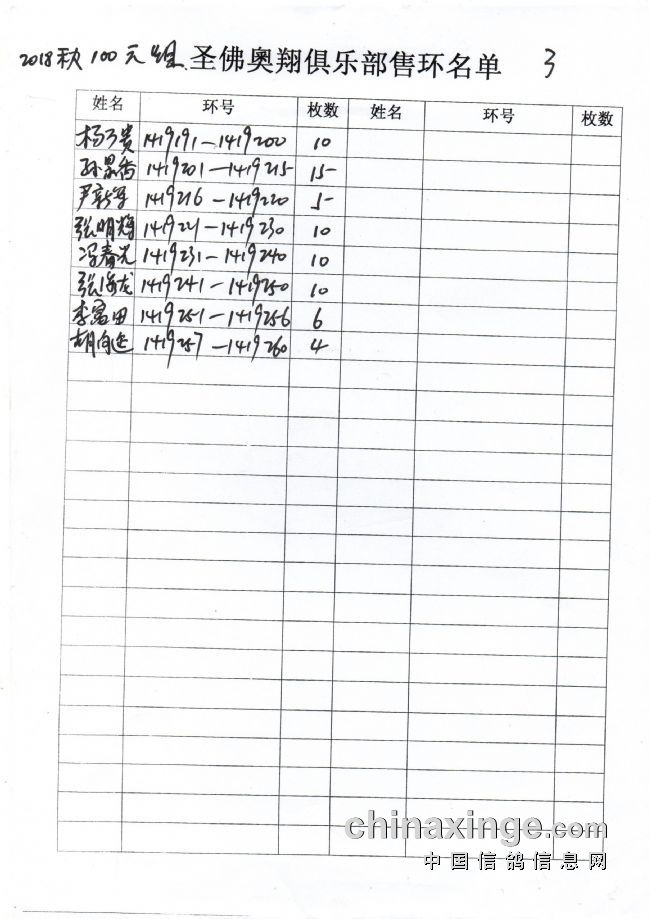 2018秋100元组 圣佛奥翔俱乐部售环名单 3
姓名 环号 枚数 姓名 环号 枚数
杨万贵 1419191—1419200 10
孙景香 1419201—1419215 15
尹新军 1419216—1419220 5
张明辉 1419221—1419230 10
冯春光 1419231—1419240 10
张海龙 1419241—1419250 10
李富田 1419251—1419256 6
胡向 1419257—1419260 4
chinaxinge.com
中国信鸽信息网